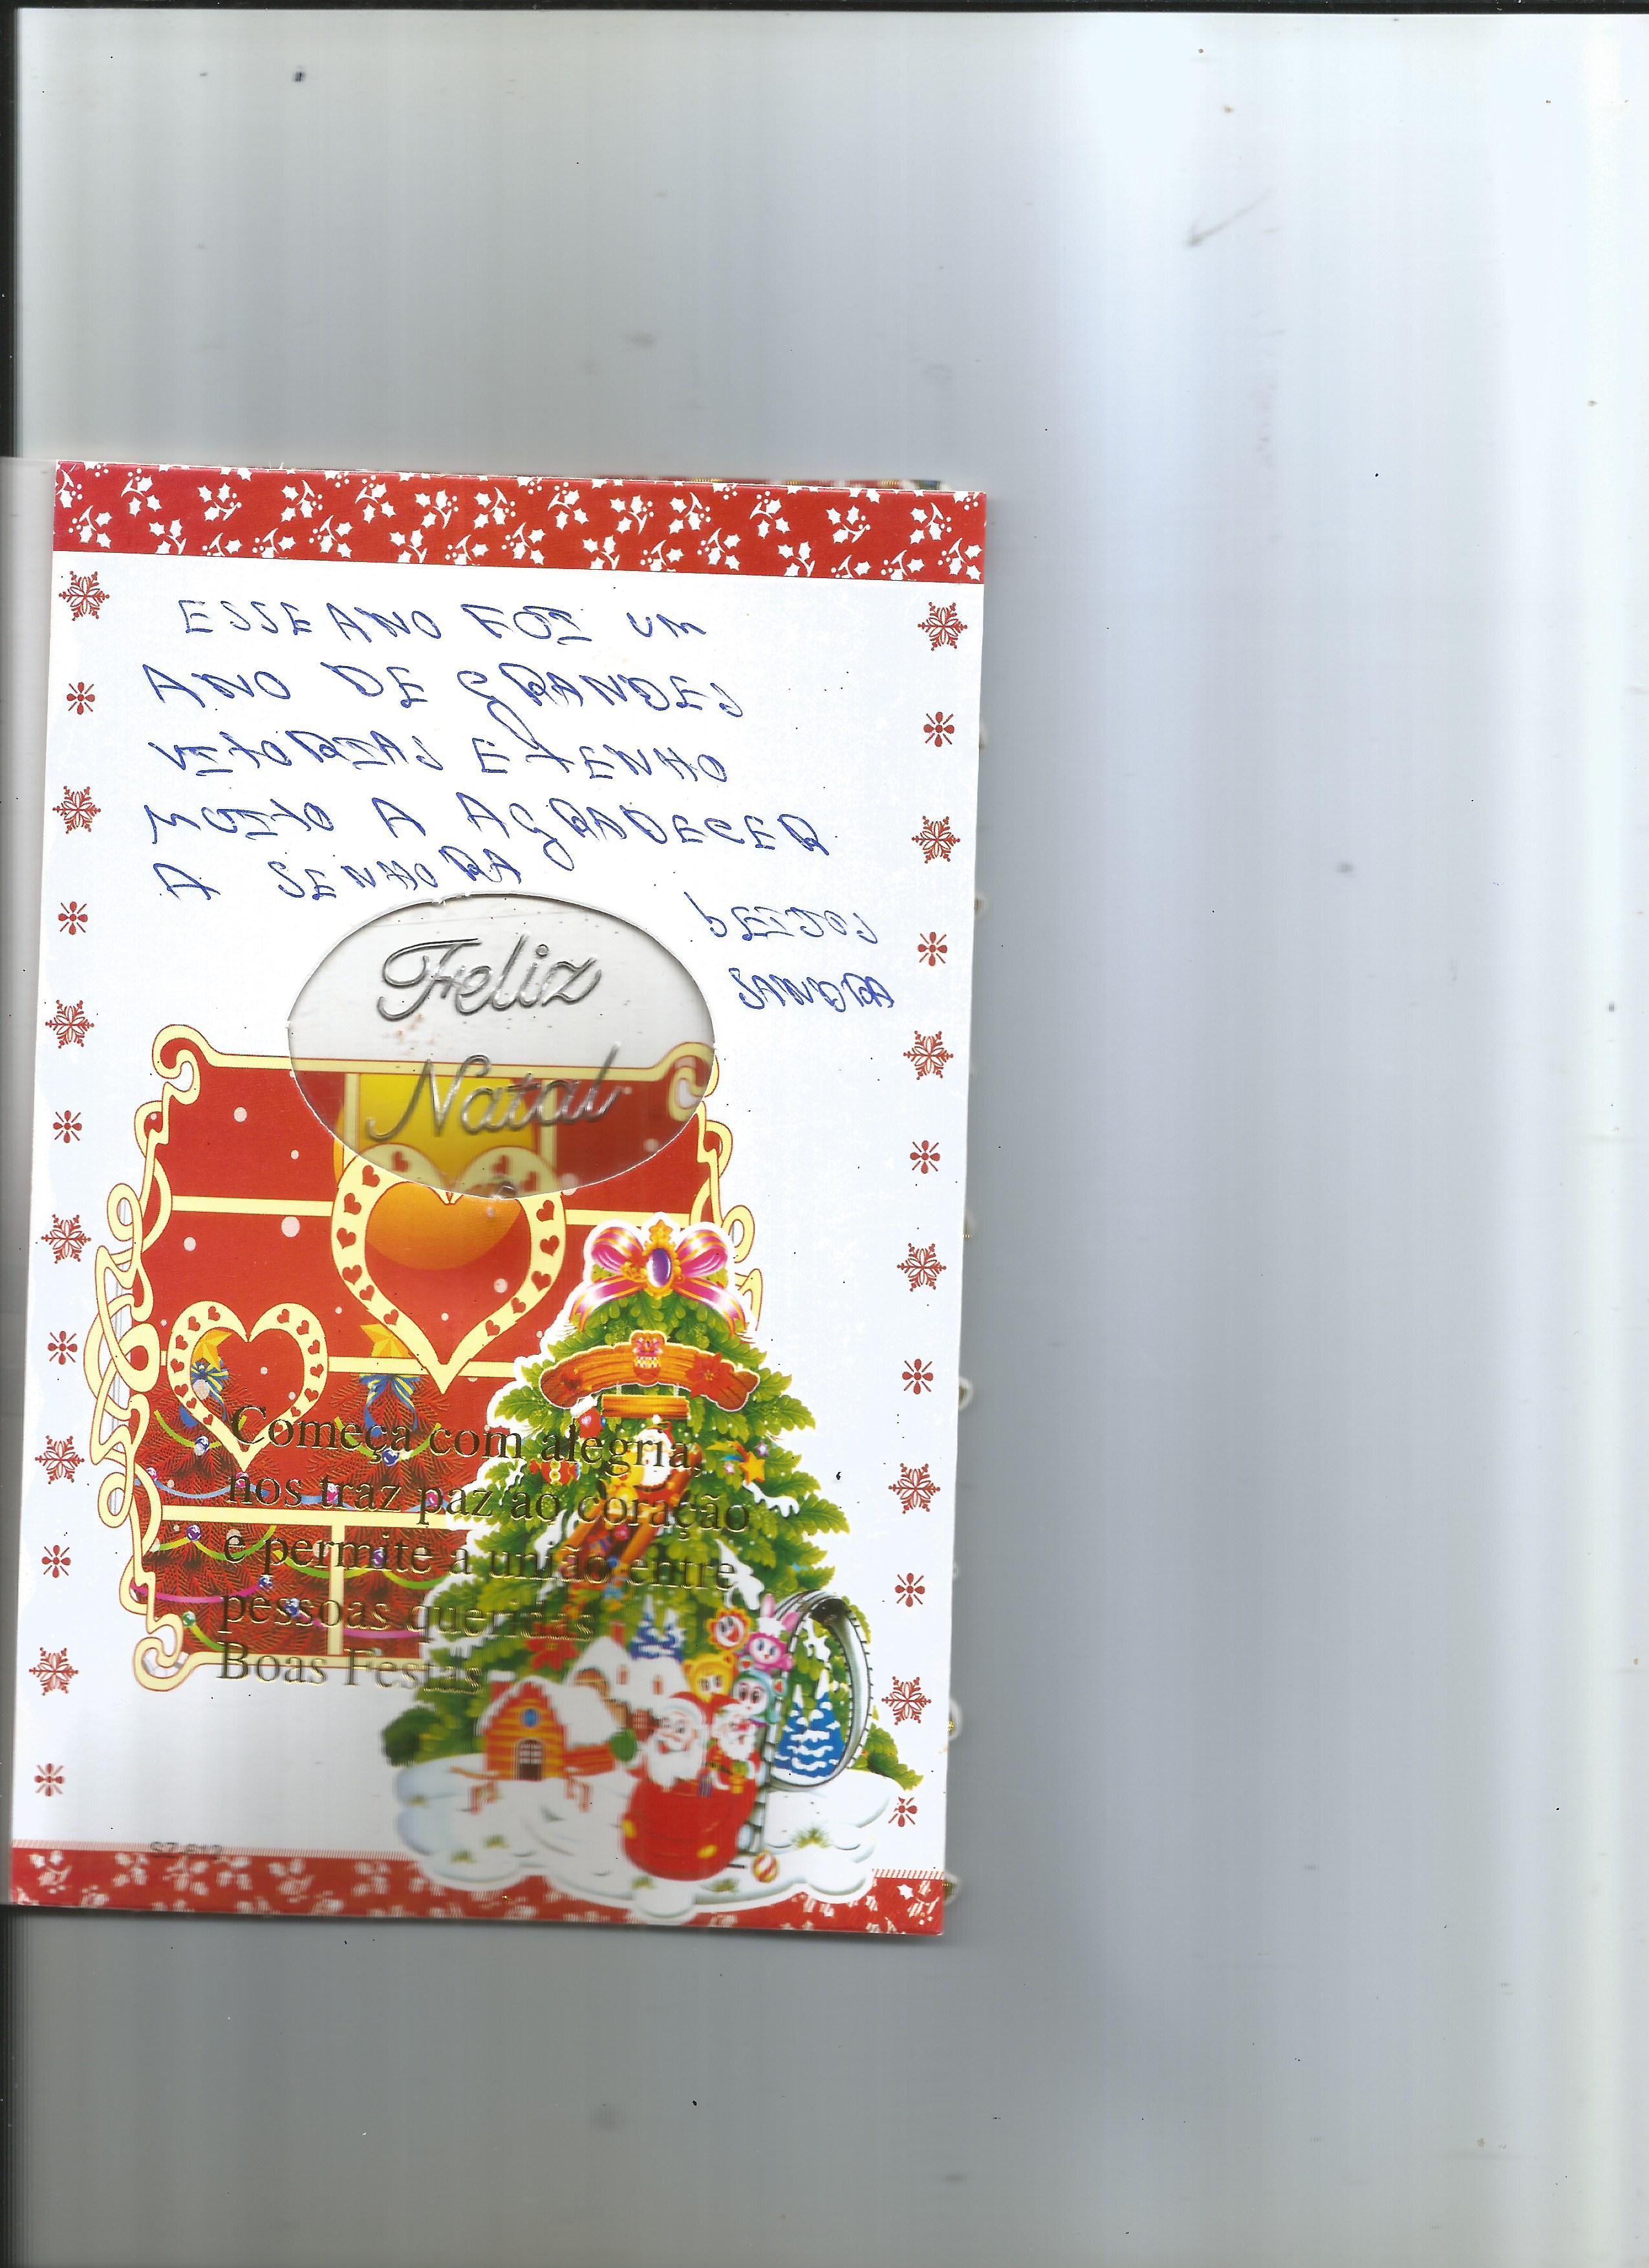 ESSE ANO FOI UM
ANO DE GRANDES
VITORIAS E TENHO
MUITO A AGRADECER
A SENHORA
bEIJOS
SANDRA
Feliz
Natal
Começa com alegria,
nos traz paz ao coração
e permite a união entre
pessoas queridas
Boas Festas
SZ-812